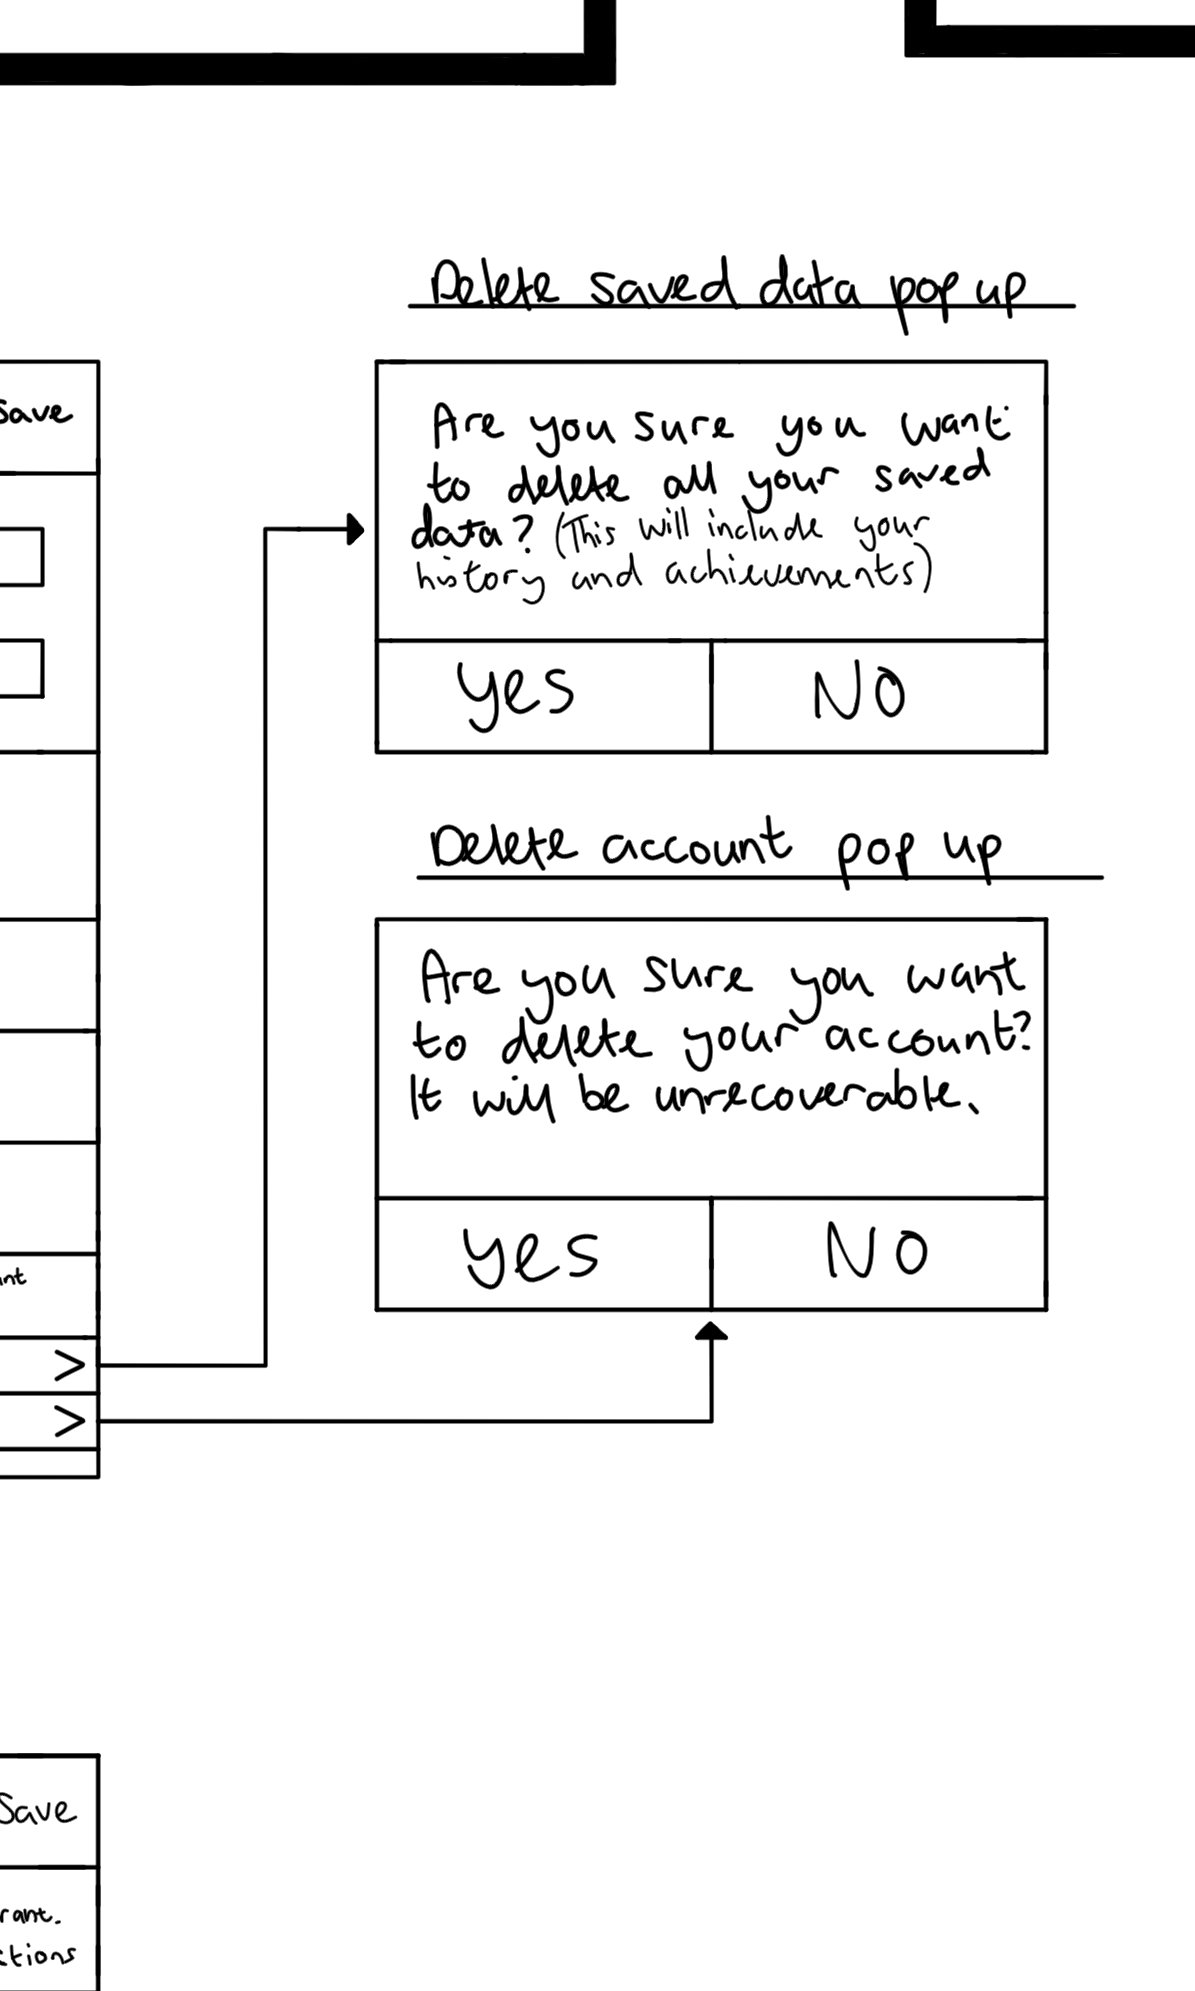 Delete saved data pop up
Save
Are you sure you want
to delete all your saved
data? (This will include your
history and achievements)
Yes
No
Delete account pop up
Are you sure you want
to delete your account?
It will be unrecoverable.
Yes
No
>
>
Save